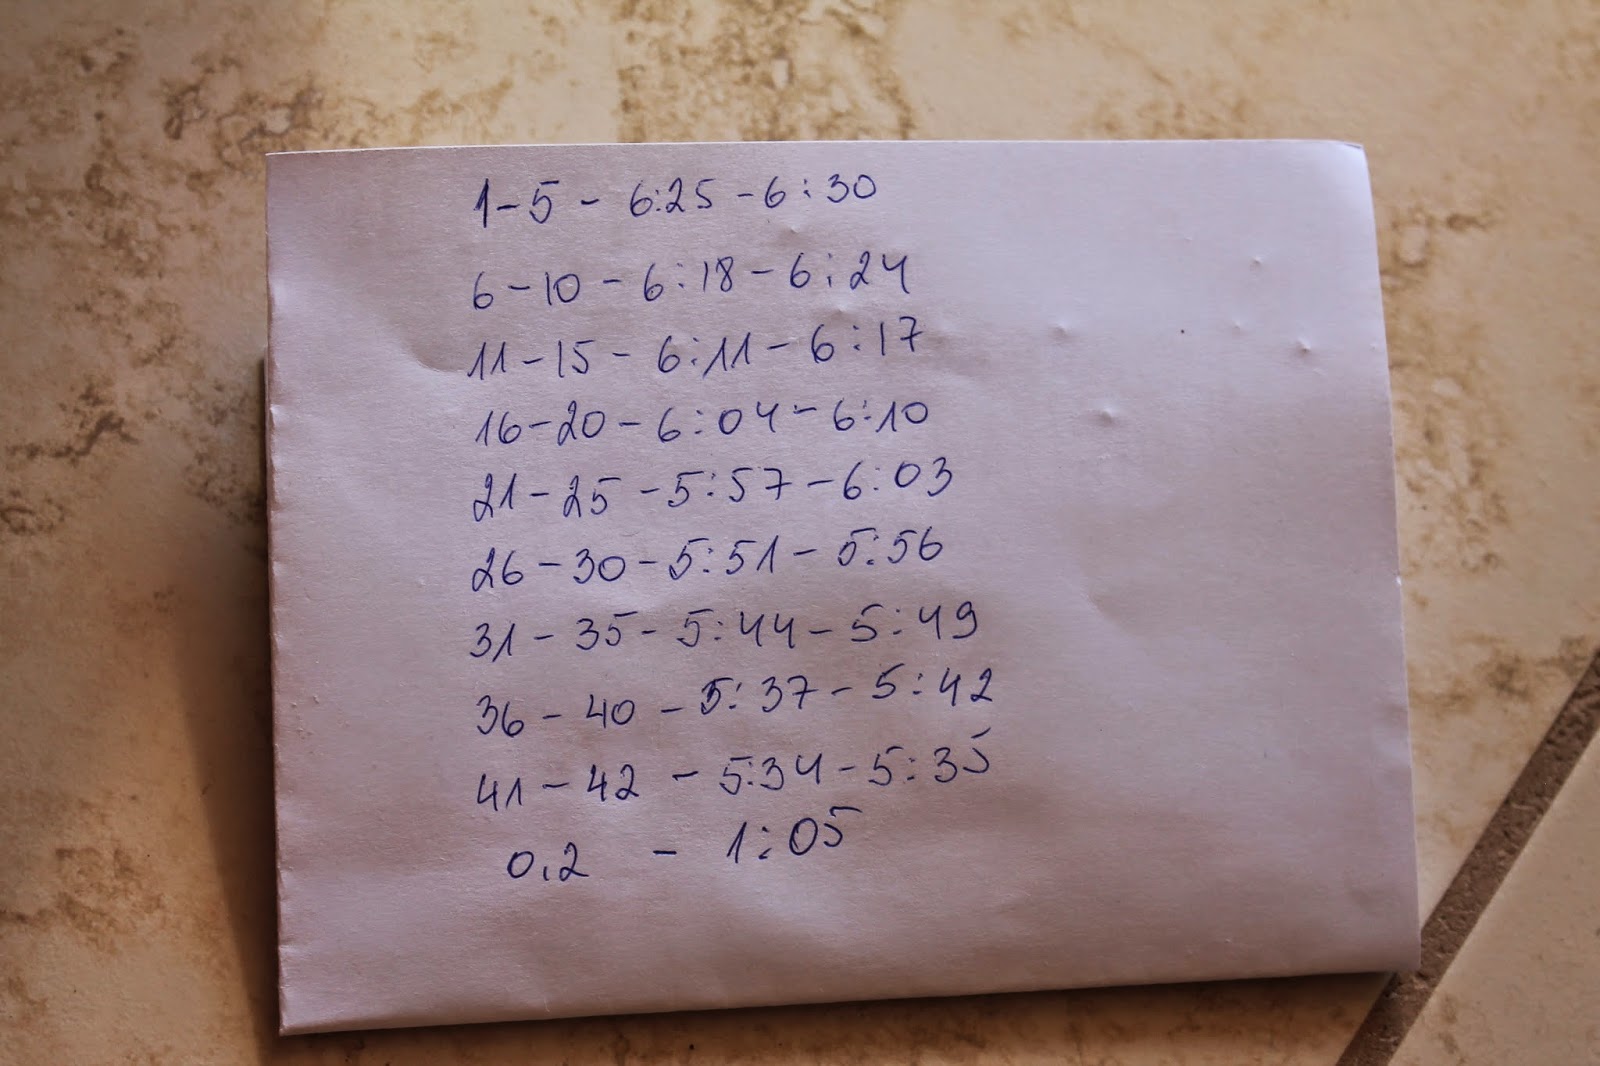 1-5 - 6:25 - 6:30
6-10 - 6:18 - 6:24
11-15 - 6:11 - 6:17
16-20 - 6:04 - 6:10
21-25 - 5:57 - 6:03
26-30 - 5:51 - 5:56
31-35 - 5:44 - 5:49
36-40 - 5:37 - 5:42
41-42 - 5:34 - 5:35
0.2 - 1:05